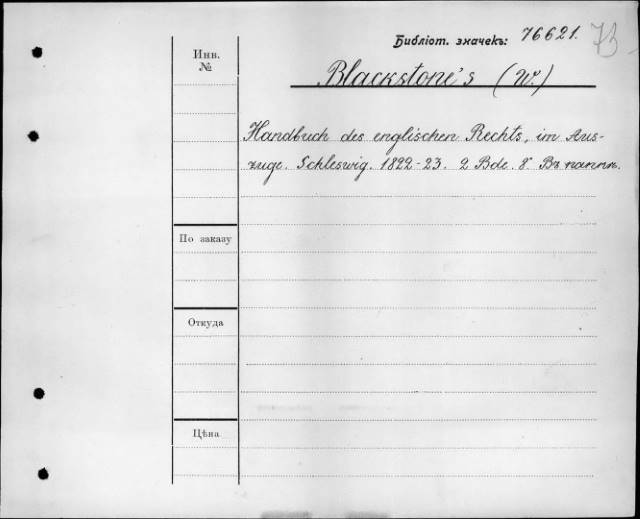 Библіот. значекъ: 76621. 73
Инв.
№
Blackstone's (W.)
Handbuch des englischen Rechts, im Aus-
zuge. Schleswig. 1822-23. 2 Bde. 8° Въ папкп.
По заказу
Откуда
Цѣна